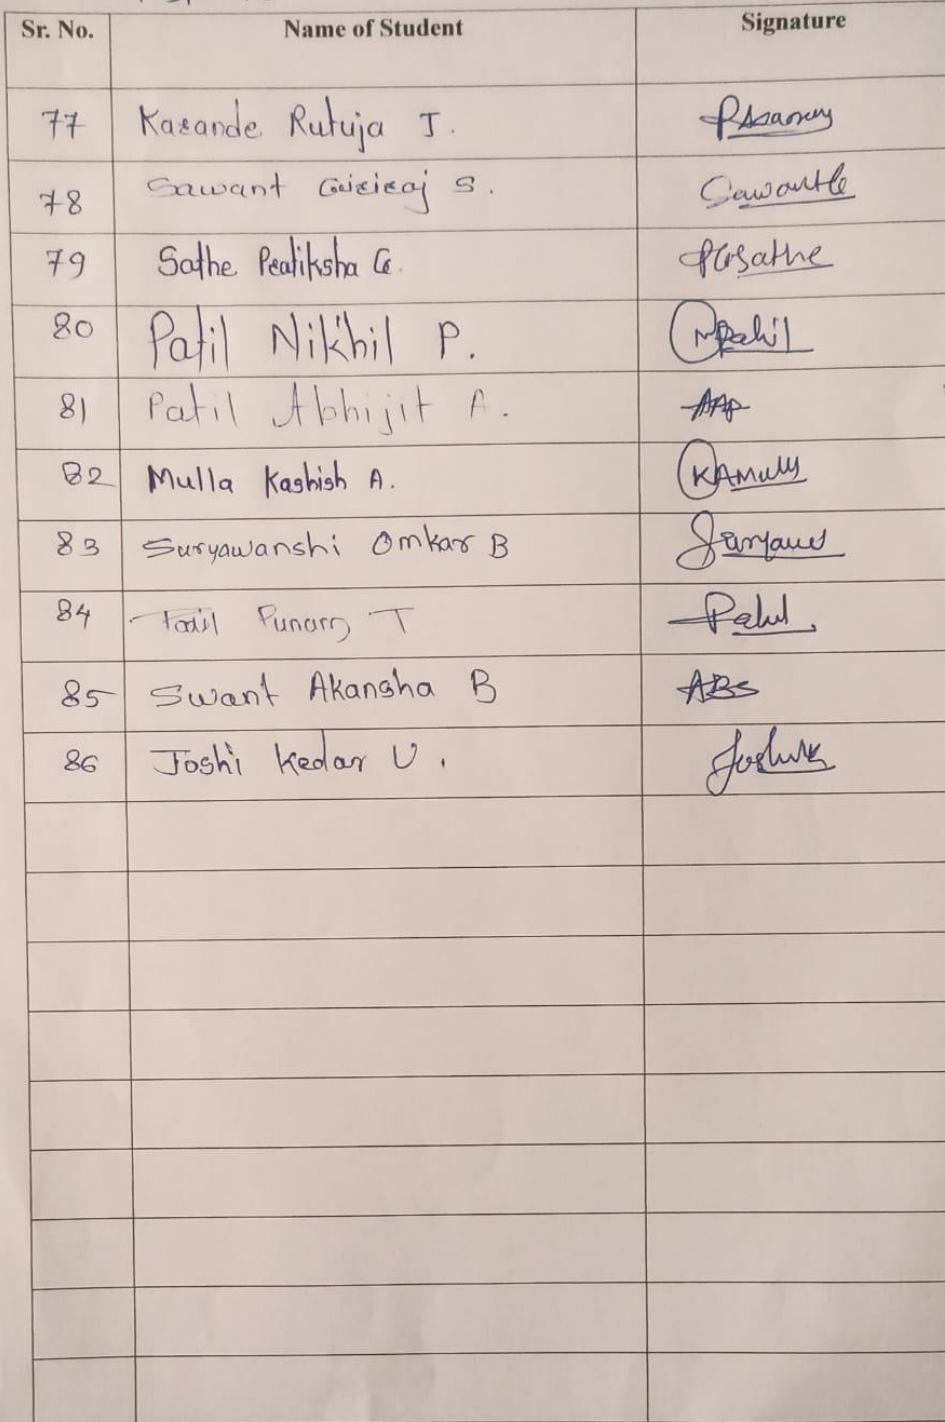 Sr. No. Name of Student Signature
77 Karande Rutuja J.
78 Sawant Giriraj S.
79 Sathe Pratiksha G. PGSathe
80 Patil Nikhil P. NPPatil
81 Patil Abhijit A. AAP
82 Mulla Kashish A. KAMulla
83 Suryawanshi Omkar B
84 Punam T
85 Swant Akansha B ABS
86 Joshi Kedar U.